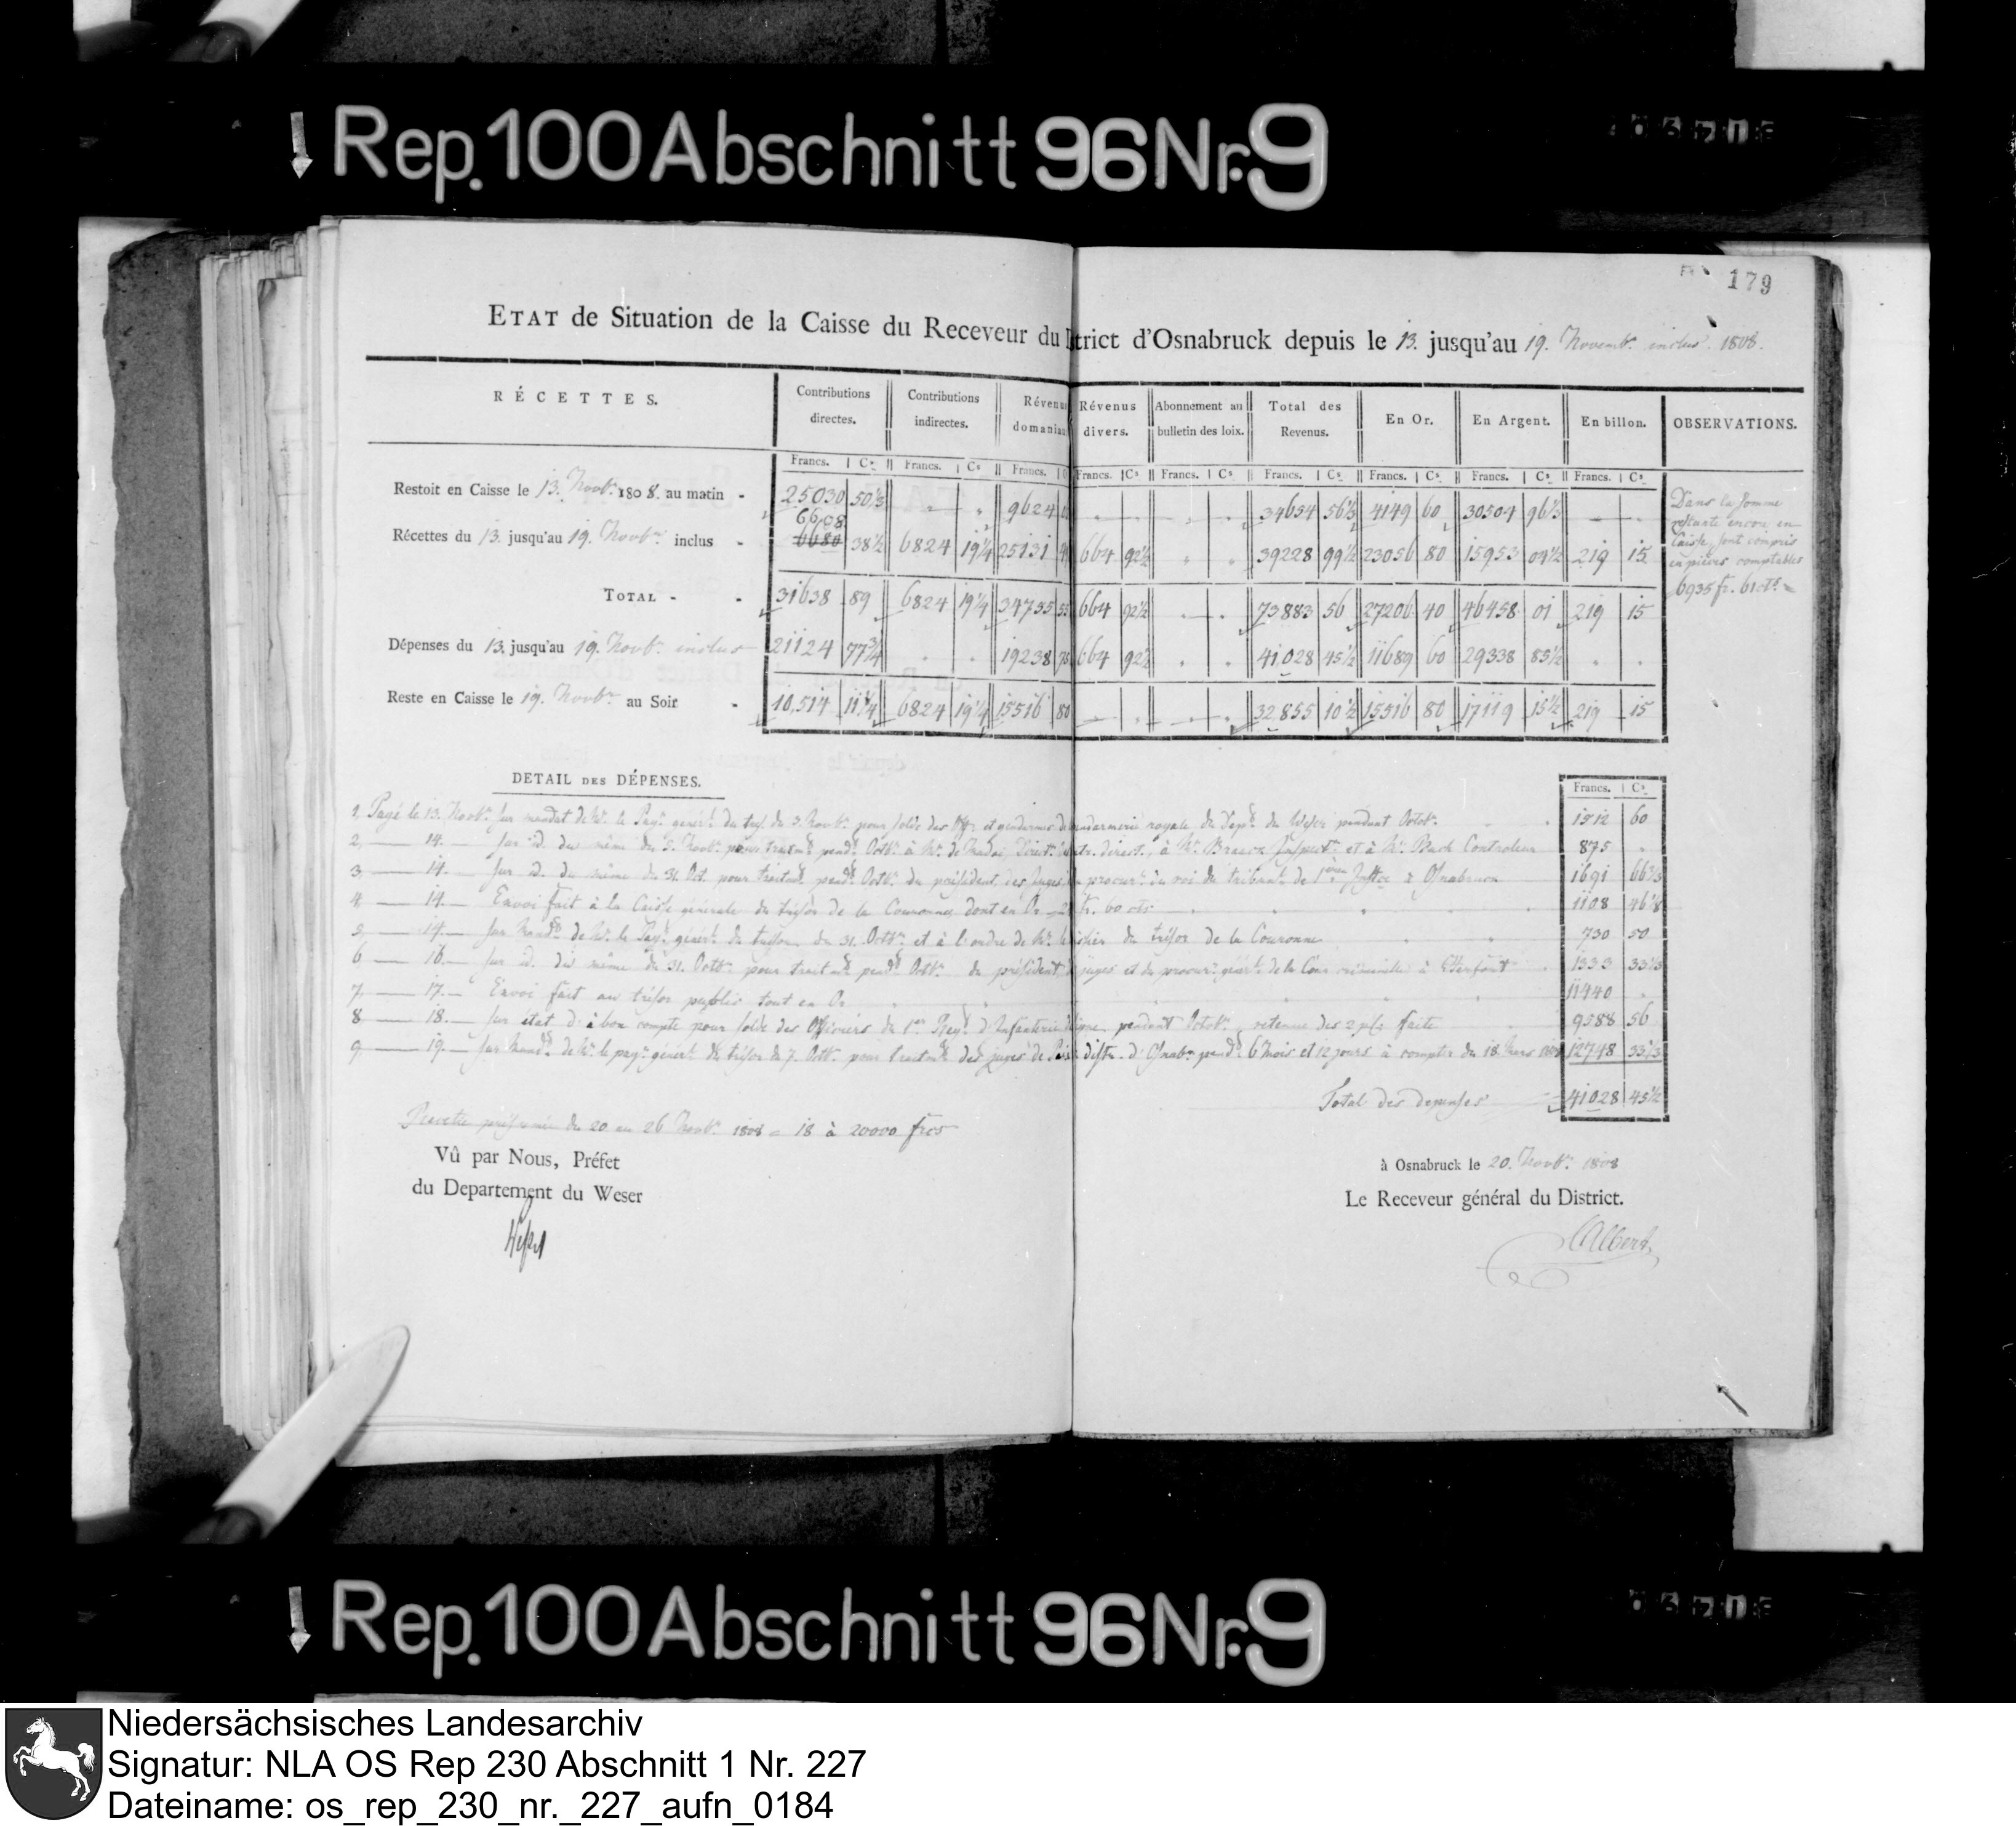 Rep. 100 Abschnitt 96 Nr. 9
179
ETAT de Situation de la Caisse du Receveur du trict d'Osnabruck depuis le 13. jusqu'au 19. Novembr. inclus. 1808.
RÉCETTES. Contributions directes. Contributions indirectes. Révenus domaniaux Révenus divers. Abonnement au bulletin des loix. Total des Revenus. En Or. En Argent. En billon. OBSERVATIONS.
Francs. Cs. Francs. Cs Francs. Francs. Cs Francs. Cs. Francs. Cs. Francs. Cs. Francs. Cs. Francs. Cs.
Restoit en Caisse le 13. Novbr. 1808. au matin - 25030 50⅓ 9624 34654 56⅓ 4149 60 30504 96⅓
6608
Récettes du 13. jusqu'au 19. Novbr. inclus - 6680 38½ 6824 19¼ 25131 664 92½ 39228 99½ 23056 80 15953 04½ 219 15
TOTAL - - 31638 89 6824 19¼ 34755 55 664 92½ 73883 56 27206 40 46458 01 219 15
Dépenses du 13. jusqu'au 19. Novbr. inclus 21124 77¾ 19238 75 664 92½ 41028 45½ 11689 60 29338 85½
Reste en Caisse le 19. Novbr. au Soir - 10,514 11¼ 6824 19¼ 15516 80 32855 10½ 15516 80 17119 15½ 219 15
Dans la somme
restante encore en
Caisse, sont compris
en pièces comptables
6935 fr. 61 cts.
DETAIL DES DÉPENSES.
Francs. Cs.
1, Payé le 13. Novbr. sur mandat de Mr. le Pay. génér. du trés. du 3. Novbr. pour solde des et gendarmes de gendarmerie royale du Dept. du Weser pendant Octobr. 1512 60
2, 14. sur id. du même du 5. Novbr. pour traitmt. pendt. Octbr. à Mr. de direct., à Mr. Inspectr. et à Mr. Controleur 875
3 14. sur id. du même du 31. Oct. pour traitmt. pendt. Octbr. du président, des juges, procurr. du roi du tribunal de 1ère à Osnabruck 1691 66⅔
4 14. Envoi fait à la Caisse générale du trésor de la Couronne, dont en Or fr. 60 cts 1108 46
5, 14. sur Mandt. de Mr. le Payr. génér. du trésor du 31. Octbr. et à l'ordre de Mr. le du trésor de la Couronne 730 50
6 16. sur id. du même du 31. Octbr. pour traitmt. pendt. Octbr. du président, juges et du procurr. génér. de la Cour criminelle à 1333 33⅓
7, 17. Envoi fait au trésor public tout en Or 11440
8 18. sur état d. à bon compte pour solde des Officiers du 1er Regt. d'Infanterie ligne, pendant Octobr., retenue des 2 faite 9588 56
9 19. sur Mandt. de Mr. le payr. génér. du trésor du 7. Octbr. pour traitmt. des juges de Paix distr. d'Osnabr. pendt. 6 mois et 12 jours à compter du 18. Mars 1808 12748 33⅓
Total des depenses 41028 45½
Recette présumée du 20 au 26 Novbr. 1808 = 18 à 20000 frcs
Vû par Nous, Préfet
du Departement du Weser
à Osnabruck le 20. Novbr. 1808
Le Receveur général du District.
Albert
Rep. 100 Abschnitt 96 Nr. 9
Niedersächsisches Landesarchiv
Signatur: NLA OS Rep 230 Abschnitt 1 Nr. 227
Dateiname: os_rep_230_nr._227_aufn_0184